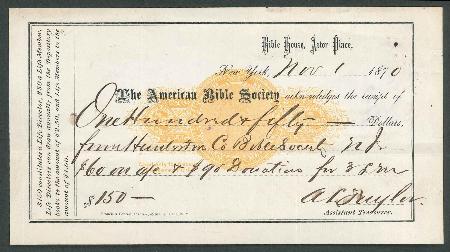 Bible House, Astor Place,
New York, Nov 1 1870
The American Bible Society acknowledges the receipt of
One Hundred & fifty — Dollars,
from Hunterdon Co Bible Society N J
$60 on a/c & $90 Donation for 3 L M
$150 —
A L Taylor
Assistant Treasurer.
$150 constitutes a Life Director, $30 a Life Member.
Life Directors can draw annually from the Depository
books to the amount of and Life Members to the
amount of $1.00.